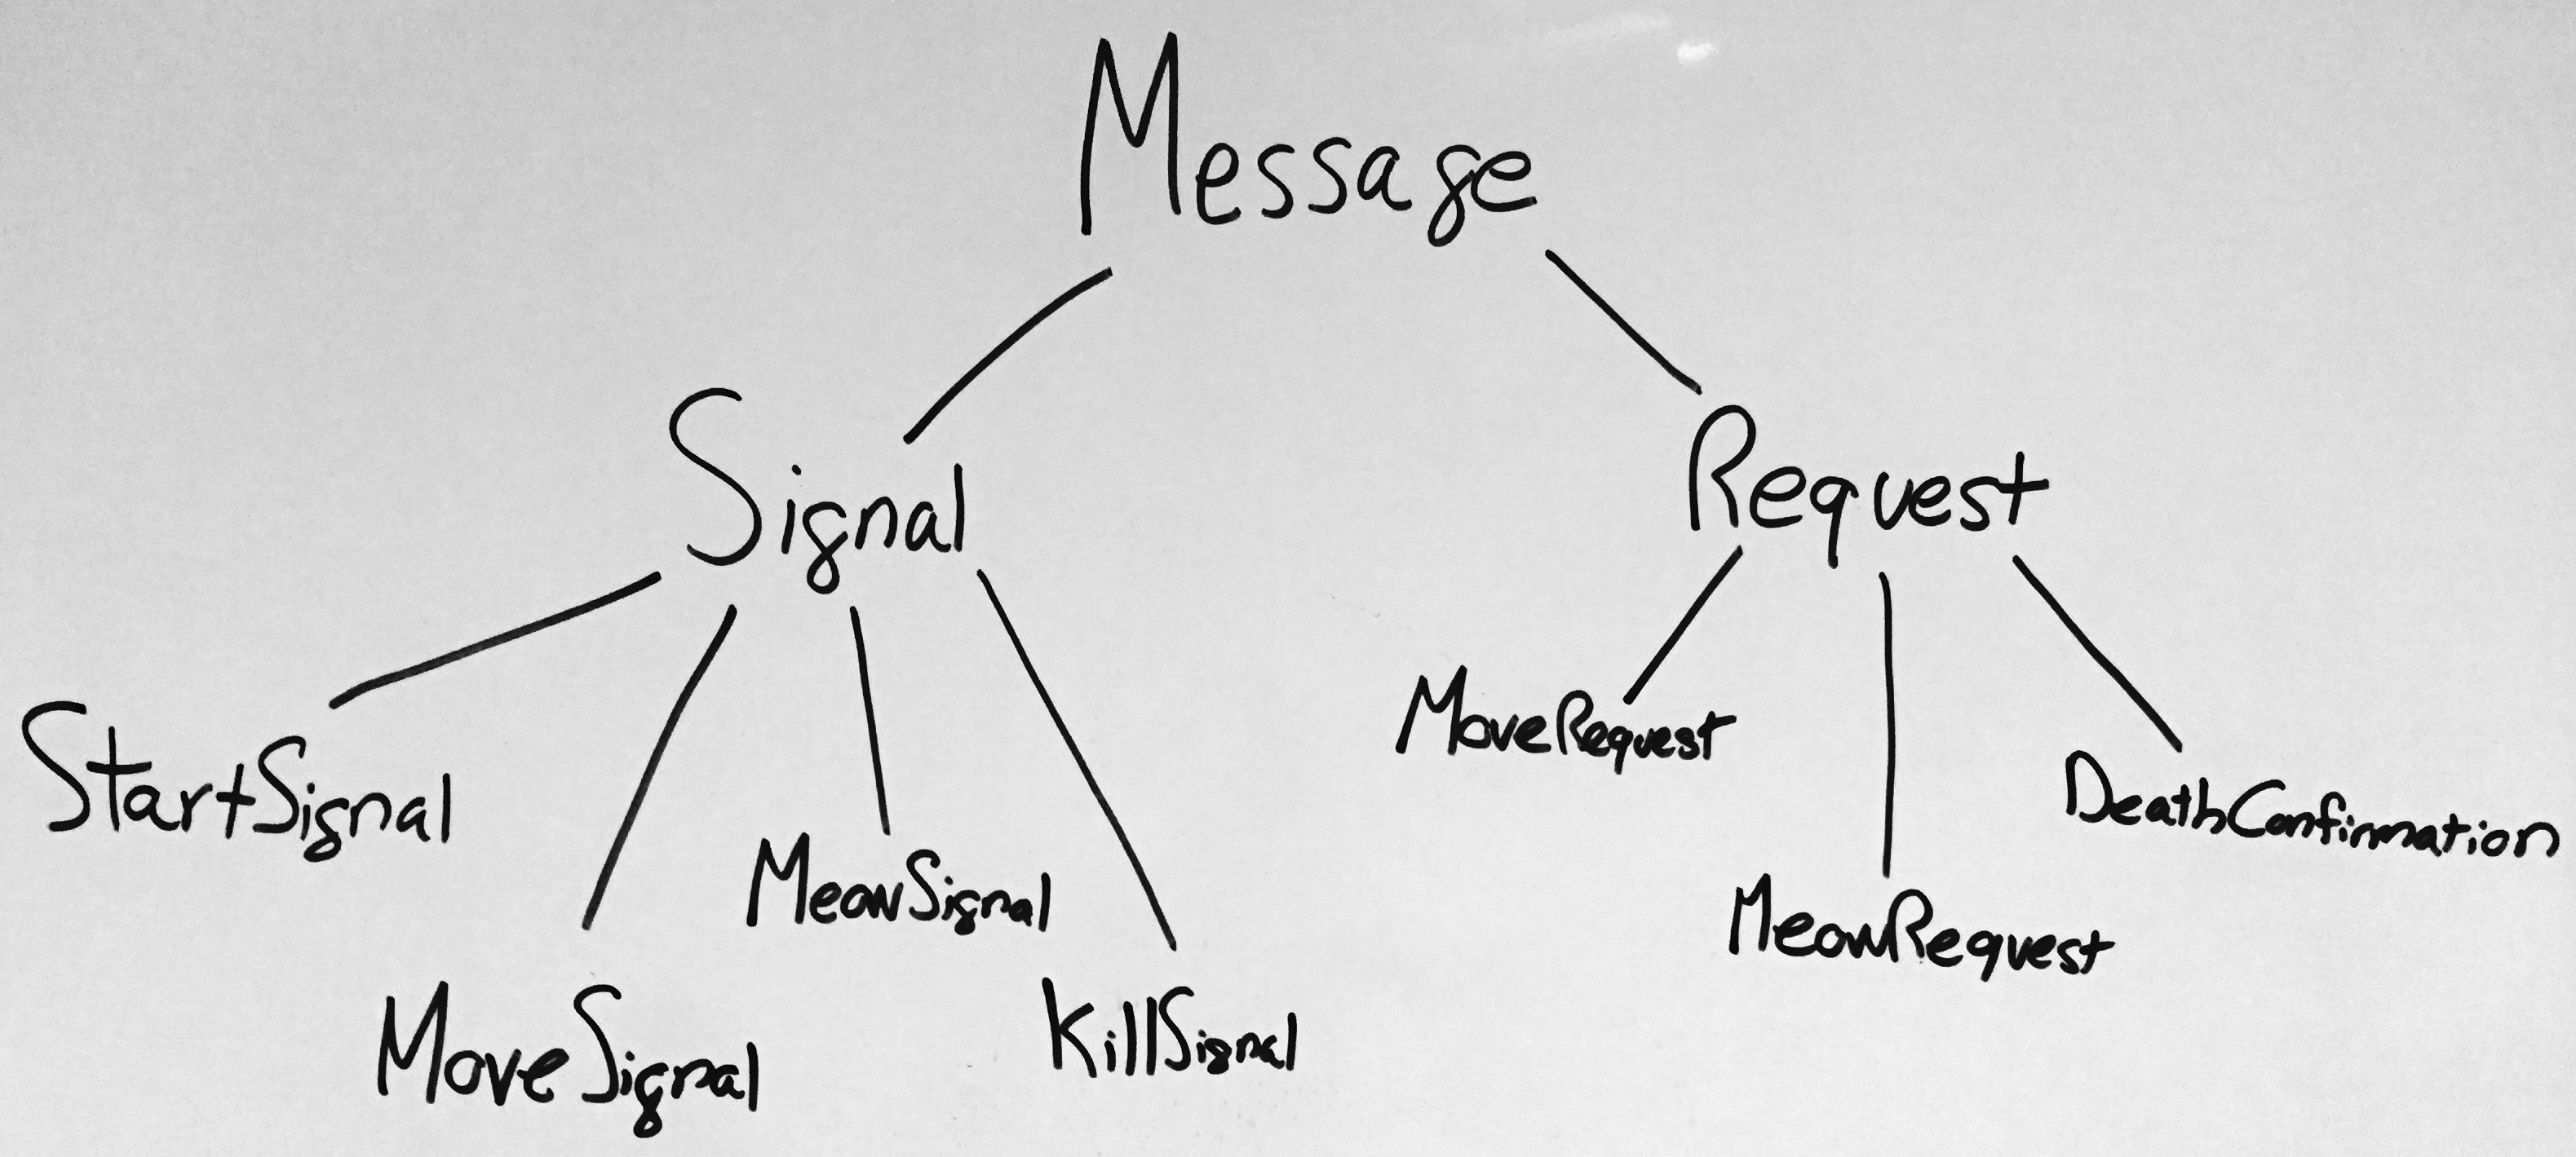 Message
Signal
Request
StartSignal
MoveSignal
MeowSignal
KillSignal
MoveRequest
MeowRequest
DeathConfirmation